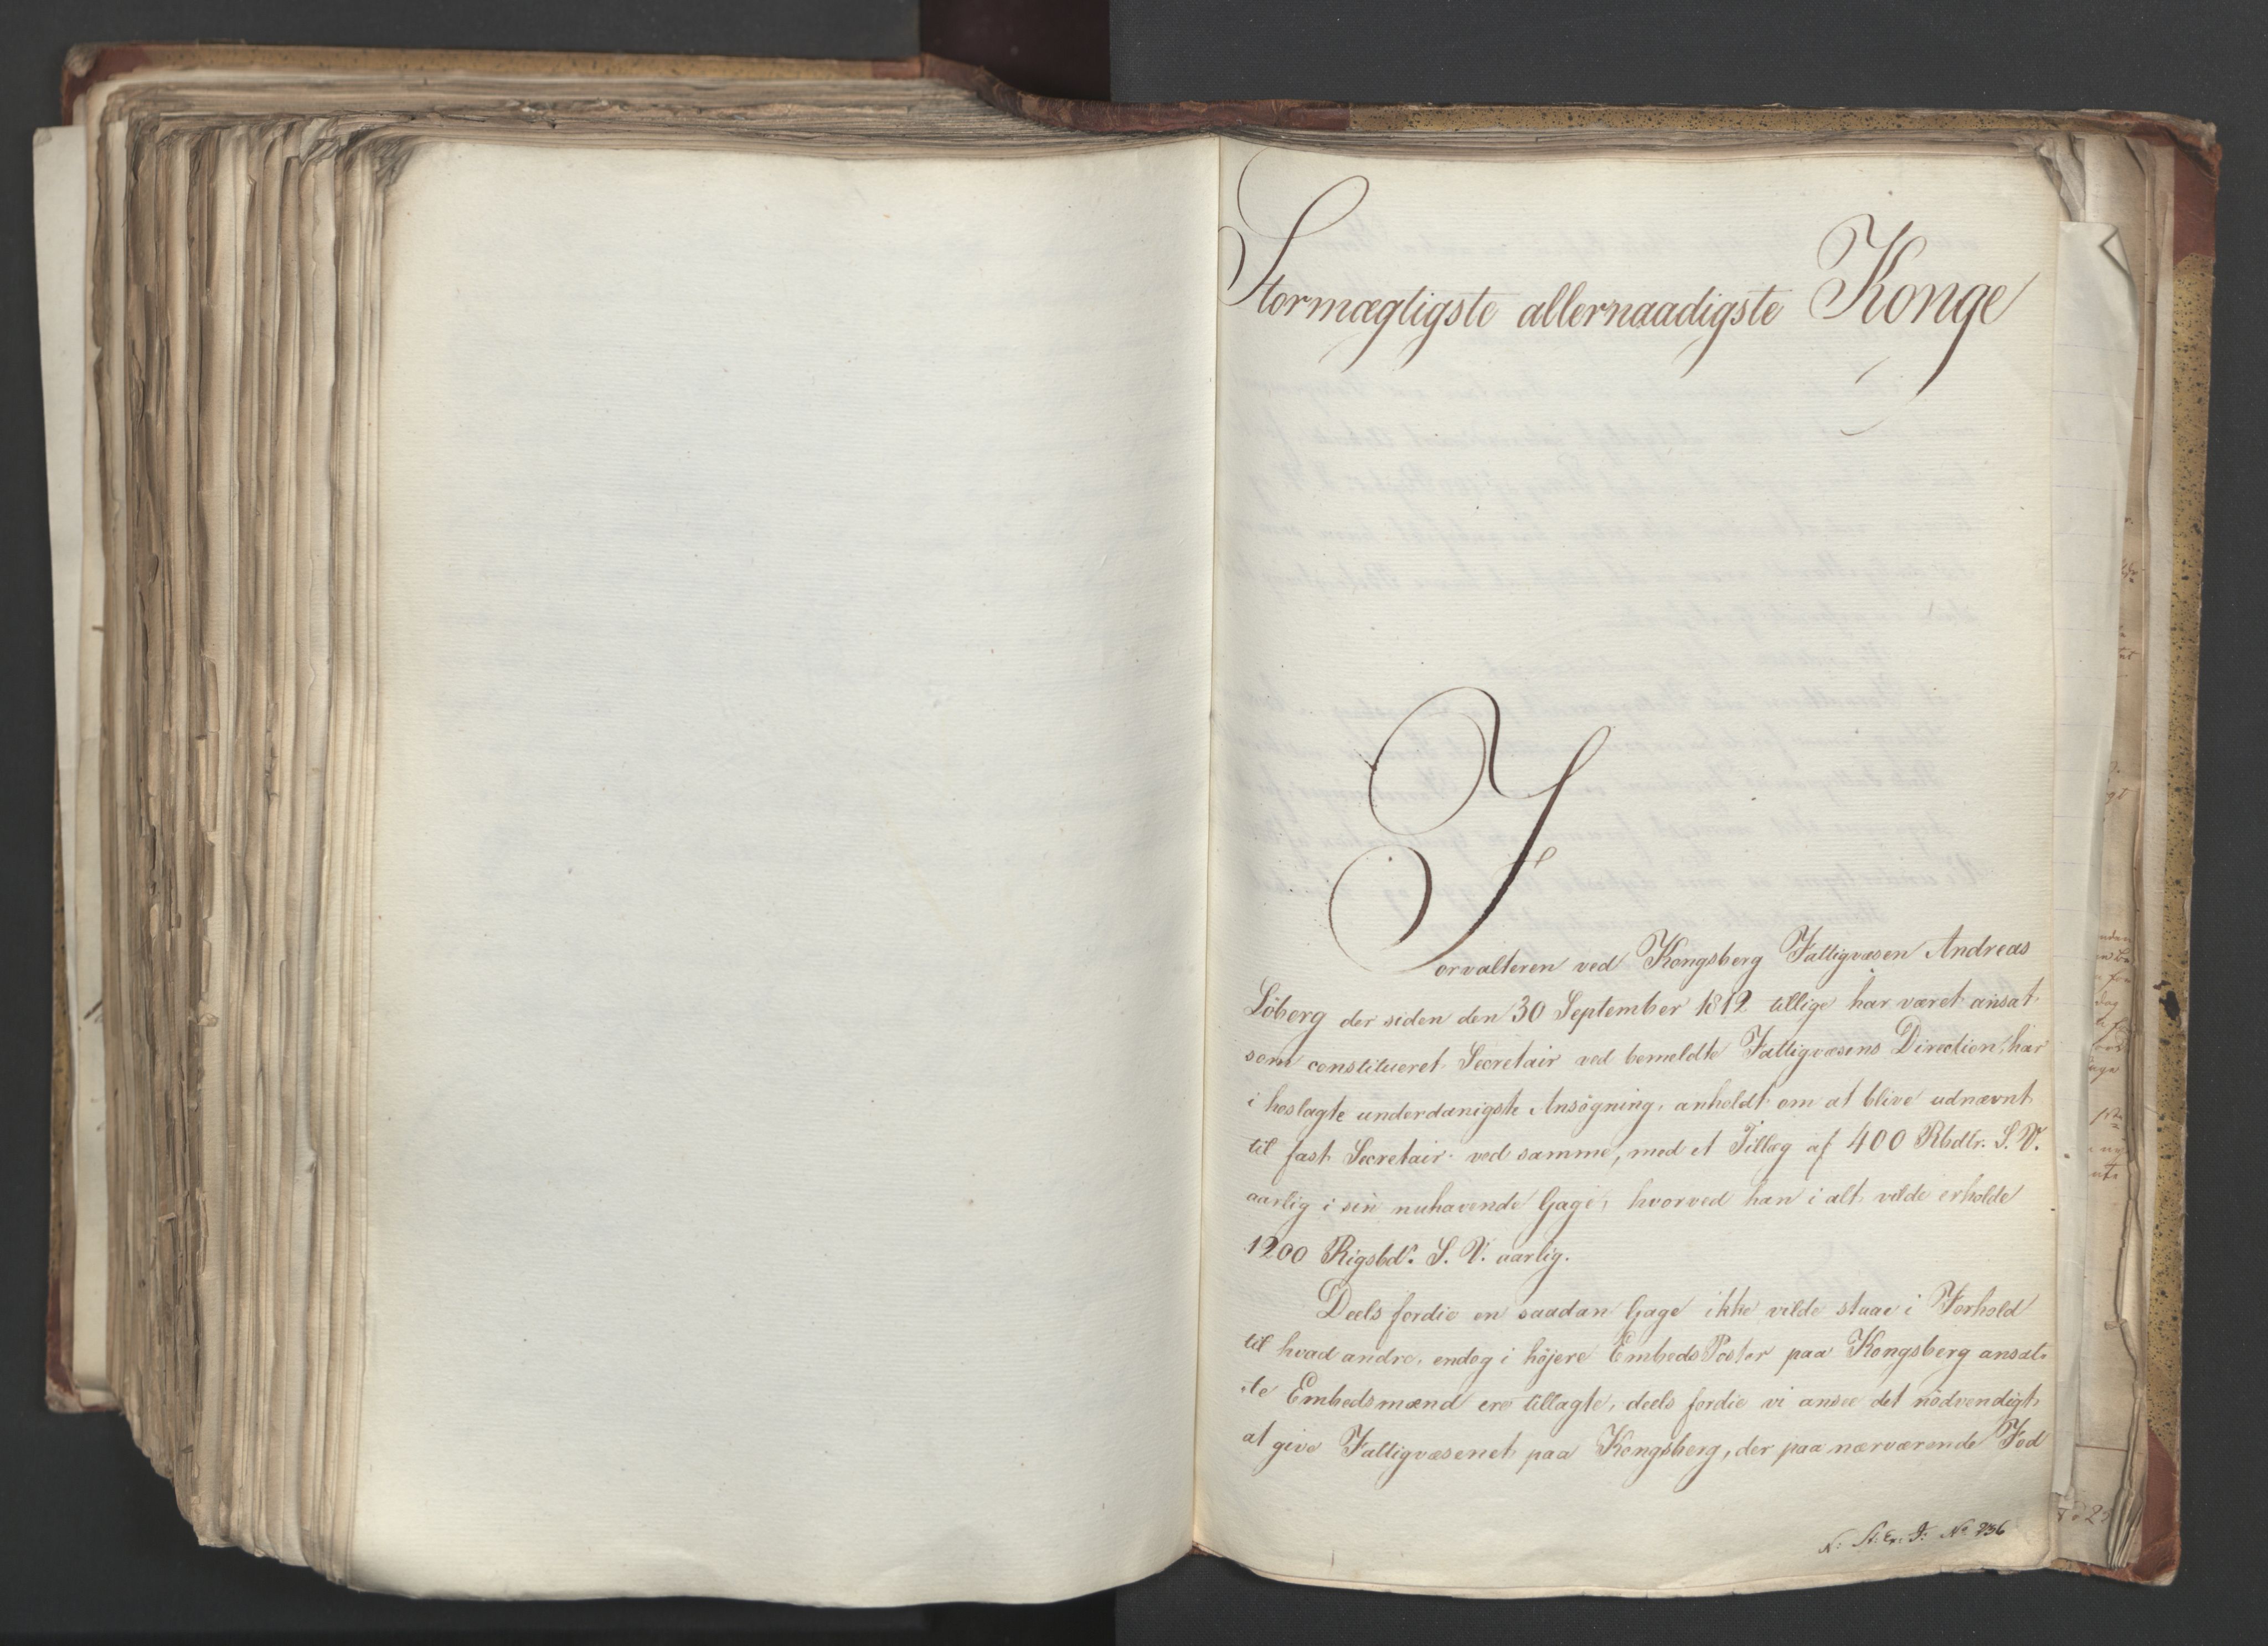 Stormægtigste allernaadigste Konge
Forvalteren ved Kongsberg Fattigvæsen Andreas
Löberg der siden den 30 September 1812 tillige har været ansat
som constitueret Secretair ved bemeldte Fattigvæsens Direction, har
i hoslagte underdanigste Ansögning, anholdt om at blive udnævnt
til fast Secretair ved samme, med et Tillæg af 400 Rbdlr. S. V.
aarlig i sin nuhavende Gage, hvorved han i alt vilde erholde
1200 Rigsbdr. S. V. aarlig.
Deels fordie en saadan Gage ikke vilde staae i Forhold
til hvad andre, endog i höjere Embeds Poster paa Kongsberg ansat-
-te Embedsmænd ere tillagte, deels fordie vi ansee det nödvendigt
at give Fattigvæsenet paa Kongsberg, der paa nærværende Fod
No 236